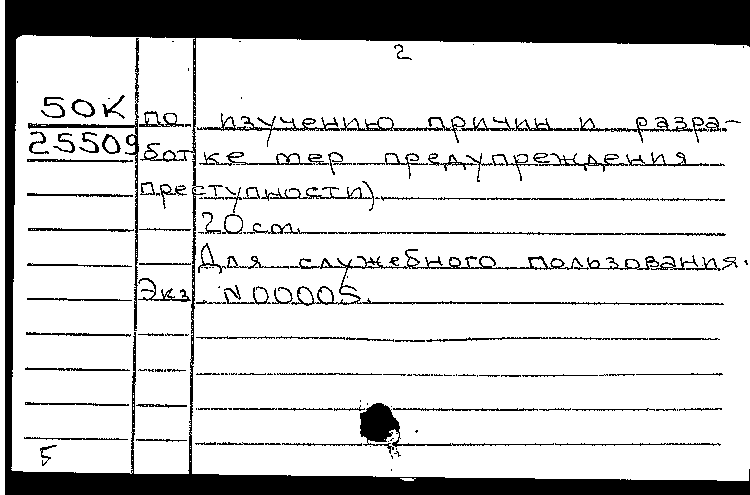 2
50К по изучению причин и разра-
25509 ботке мер предупреждения
преступности).
20 см.
Для служебного пользования.
Экз. N 00005.
5